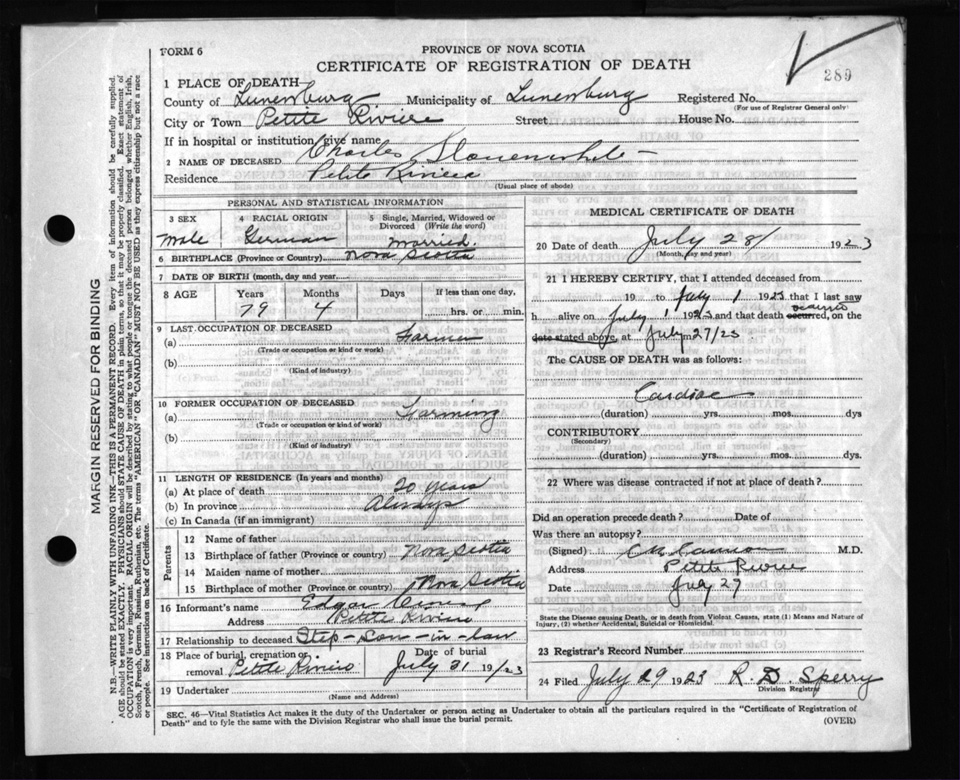 FORM 6
PROVINCE OF NOVA SCOTIA
CERTIFICATE OF REGISTRATION OF DEATH
289
1 PLACE OF DEATH—
County of Lunenburg Municipality of Lunenburg Registered No.
(For use of Registrar General only)
City or Town Petite Riviere Street House No.
If in hospital or institution give name
2 NAME OF DECEASED Charles Slauenwhite
Residence Petite Riviere
(Usual place of abode)
PERSONAL AND STATISTICAL INFORMATION
3 SEX Male
4 RACIAL ORIGIN German
5 Single, Married, Widowed or Divorced (Write the word) Married.
6 BIRTHPLACE (Province or Country) Nova Scotia
7 DATE OF BIRTH (month, day and year
8 AGE Years Months Days If less than one day,
79 4 hrs. or min.
9 LAST OCCUPATION OF DECEASED
(a) Farmer
(Trade or occupation or kind or work)
(b)
(Kind of industry)
10 FORMER OCCUPATION OF DECEASED
(a) Farming
(Trade or occupation or kind of work)
(b)
(Kind of Industry)
11 LENGTH OF RESIDENCE (In years and months)
(a) At place of death 20 years
(b) In province Always
(c) In Canada (if an immigrant)
Parents
12 Name of father
13 Birthplace of father (Province or country) Nova Scotia
14 Maiden name of mother
15 Birthplace of mother (Province or country) Nova Scotia
16 Informant's name Edgar
Address Petite Riviere
17 Relationship to deceased Step-son-in-law
18 Place of burial, cremation or removal Petite Riviere Date of burial July 31 1923
19 Undertaker
(Name and Address)
MEDICAL CERTIFICATE OF DEATH
20 Date of death July 28/ 1923
(Month, day and year)
21 I HEREBY CERTIFY, that I attended deceased from
19 to July 1 1923 that I last saw
h alive on July 1 1923 and that death occurred, on the
date stated above, at July m 27/23
The CAUSE OF DEATH was as follows:
Cardiac
(duration) yrs. mos. dys
CONTRIBUTORY
(Secondary)
(duration) yrs. mos. dys.
22 Where was disease contracted if not at place of death?
Did an operation precede death? Date of
Was there an autopsy?
(Signed) M.D.
Address Petite Riviere
Date July 27
State the Disease causing Death, or in death from Violent Causes, state (1) Means and Nature of Injury, (2) whether Accidental, Suicidal or Homicidal.
23 Registrar's Record Number
24 Filed July 29 1923 R. D. Sperry
Division Registrar
SEC. 46—Vital Statistics Act makes it the duty of the Undertaker or person acting as Undertaker to obtain all the particulars required in the "Certificate of Registration of
Death" and to fyle the same with the Division Registrar who shall issue the burial permit.
(OVER)
MARGIN RESERVED FOR BINDING
N.B.—WRITE PLAINLY WITH UNFADING INK—THIS IS A PERMANENT RECORD. Every item of information should be carefully supplied.
AGE should be stated EXACTLY. PHYSICIANS should STATE CAUSE OF DEATH in plain terms, so that it may be properly classified. Exact statement of
OCCUPATION is very important. RACIAL ORIGIN will be described by stating to what people or tongue the deceased person belonged whether English, Irish,
Scotch, French, German, Russian, Ruthenian, etc. The terms "AMERICAN" OR "CANADIAN" MUST NOT BE USED as they express citizenship but not a race
or people. See instructions on back of Certificate.